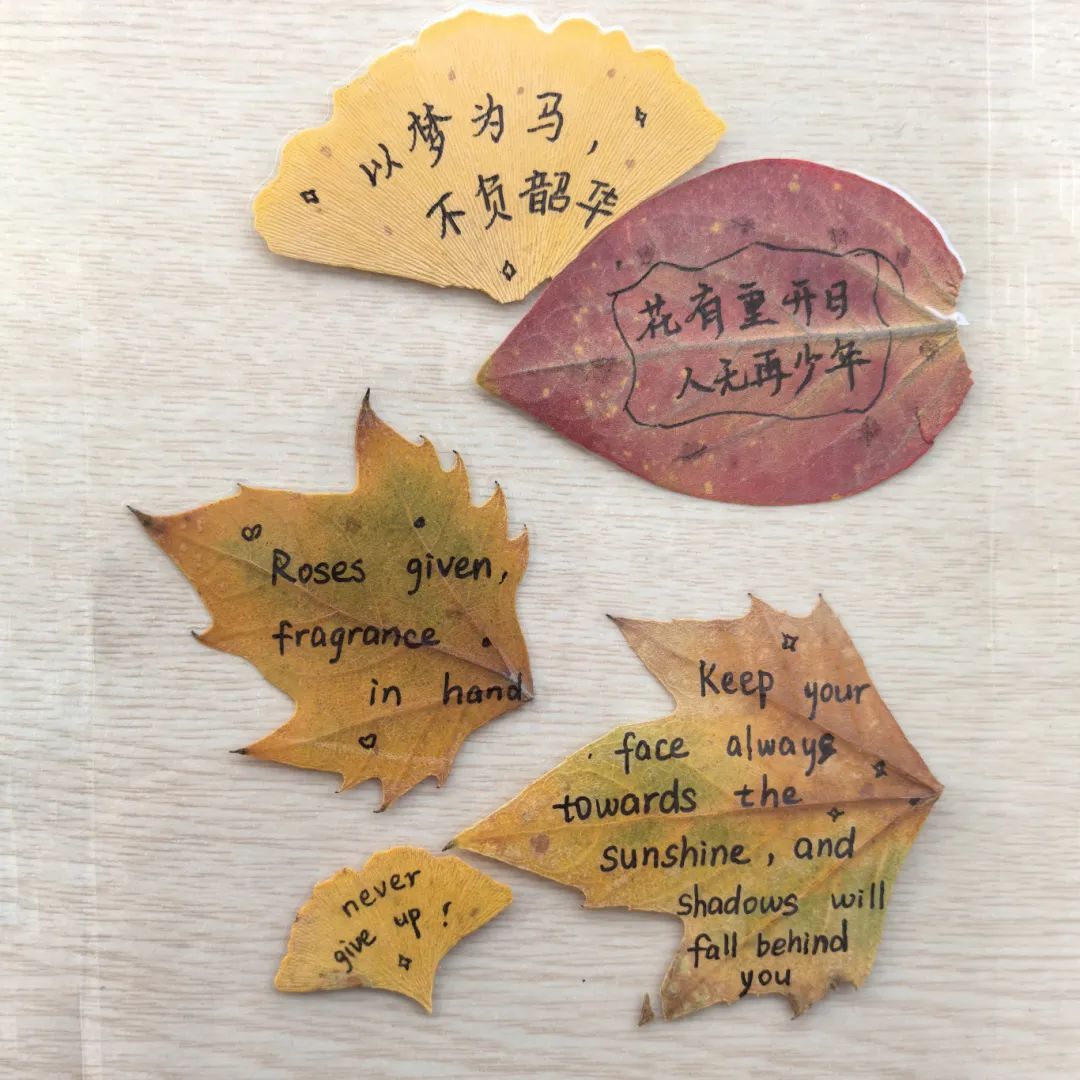 以梦为马,
不负韶华
花有重开日
人无再少年
Roses given,
fragrance
in hand
Keep your
face always
towards the
sunshine, and
shadows will
fall behind
you
never
give up!